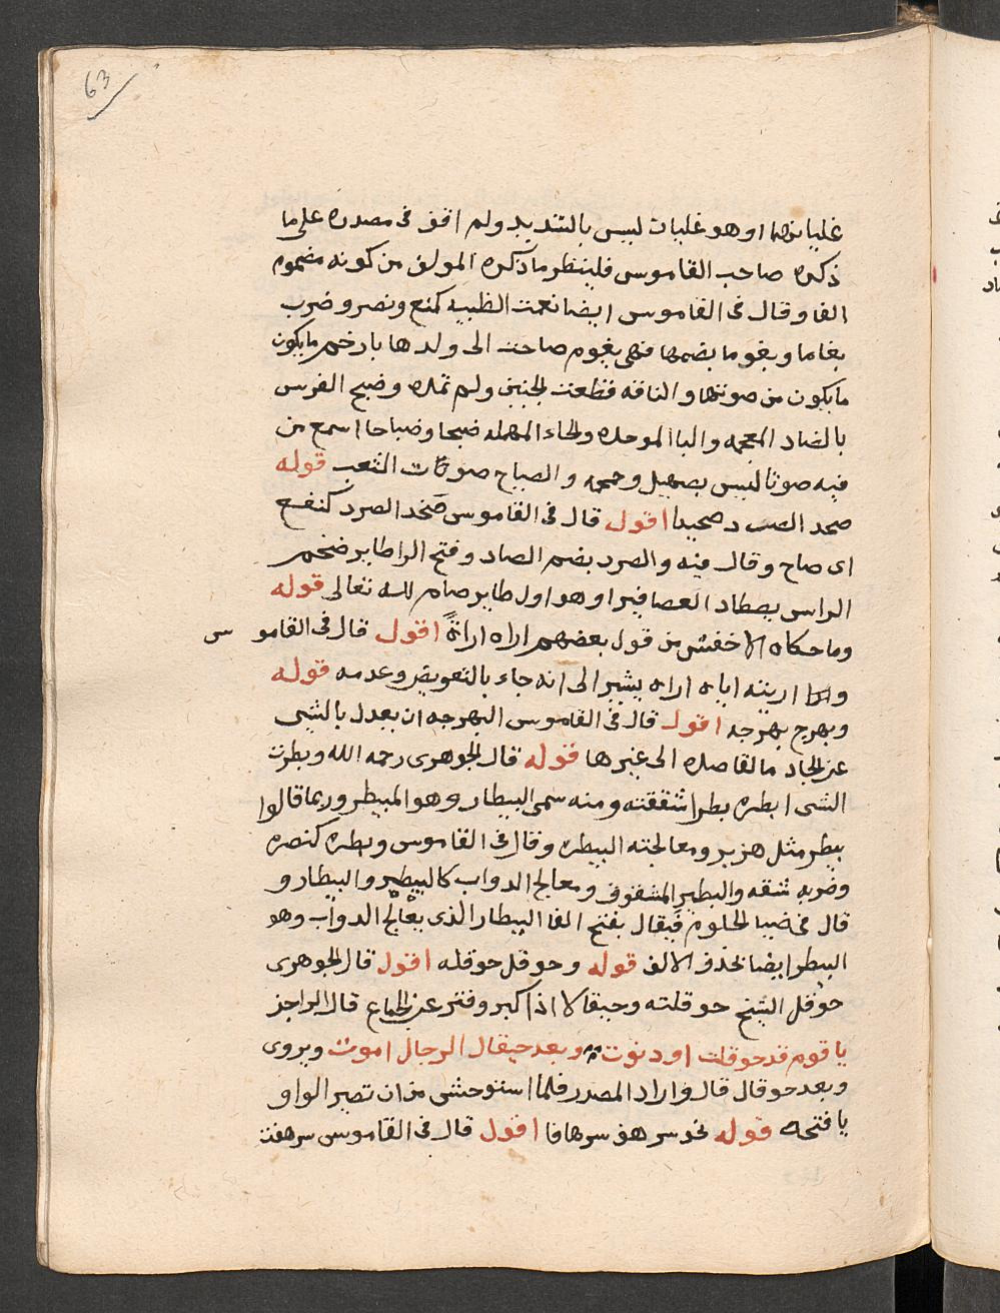 63
غليانهما او هو غليات ليس بالتشديد ولم اقف فى مصدره على ما
ذكره صاحب القاموس فلينظر ما ذكره المولف من كونه مضموم
الفا وقال فى القاموس ايضا نغمت الظبيه كمنع ونصر وضرب
بغاما وبغوما بضمها فهى بغوم صاحت الى ولدها بارخم ما يكون
ما يكون من صوتها والناقه قطعت الحنين ولم تمده وضبح الفرس
بالضاد المعجمه والبا الموحده والحاء المهمله ضبحا وضباحا اسمع من
فيه صوتا ليس بصهيل وحمحه والصباح صوتات الثعب قوله
صخد الصرد صخيدا اقول قال فى القاموس صخد الصرد كنفع
اى صاح وقال فيه والصرد بضم الصاد وفتح الرا طاير ضخم
الراس يصطاد العصافير او هو اول طاير صام لله تعالى قوله
وما حكاه الاخفش من قول بعضهم اراه اراةً اقول قال فى القامو س
واريته اياه اراه يشير الى انه جاء بالتعويض وعدمه قوله
وبهرج بهرجه اقول قال فى القاموس البهرجه ان يعدل بالشى
عن الجاده القاصده الى غيرها قوله قال الجوهرى رحمه الله وبطرت
الشى ابطره بطرا شققته ومنه سمى البيطار وهو المبيطر وربما قالوا
بيطر مثل هزبر ومعالجته البيطره وقال فى القاموس وبطره كنصره
وضربه شقه والبطير المشقوق ومعالج الدواب كالبيطر والبيطار و
قال فى ضيا الحلوم فيقال بفتح الفا البيطار الذى يعالج الدواب وهو
البيطر ايضا بحذف الالف قوله وحوقل حوقله اقول قال الجوهرى
حوقل الشيخ حوقلته وحيقالا اذا كبر وفتر عن الجماع قال الراجز
يا قوم قد حوقلت او دنوت وبعد حيقال الرجال اموت ويروى
وبعد حوقال قال واراد المصدر فلما استوحش من ان تصير الواو
يا فتحه قوله نحو سرهف سرهافا اقول قال فى القاموس سرهفت